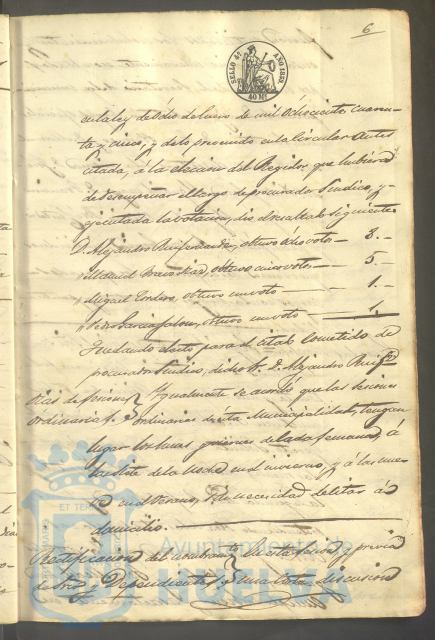 6
SELLO 4º AÑO 1853
40 Ms
en la ley de ocho de Enero de mil ochocientos cuaren-
ta y cinco, y de lo prevenido en la circular antes
citada, á la eleccion del Regidor que hubiera
de desempeñar el cargo de procurador Sindico, y
ejecutada la votacion, dió el resultado siguiente
D. Alejandro Ruifernandez, obtuvo ocho votos — 8.
" Manuel obtuvo cinco votos — 5
" Miguel Cordero, obtuvo un voto — 1.
" Garcia obtuvo un voto — 1.
Quedando electo para el cometido de
procurador Sindico, dicho Sr. D. Alejandro Ruifz
Dias de sesiones Igualmente se acordó que las sesiones
ordinarias. ordinarias de esta Municipalidad, tengan
lugar los lunes de cada semana, á
las siete de la noche en el invierno, y á las nue-
ve en el Verano, sin necesidad de citar á
domicilio.
Rectificacion del nombramto En esta y previa
de y Dependientes una discusion
ET TERR
Ayuntamiento de
HUELVA